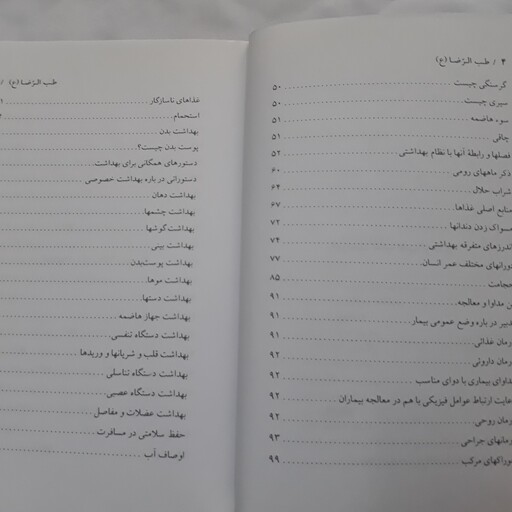 ۴ / طب الرّضـا (ع)
گرسنگی چیست ۵۰
سیری چیست ۵۰
سوء هاضمه ۵۱
چاقی ۵۱
فصلها و رابطهٔ آنها با نظام بهداشتی ۵۲
ذکر ماههای رومی ۶۰
شراب حلال ۶۴
منابع اصلی غذاها ۶۷
مسواک زدن دندانها ۷۲
اندرزهای متفرقه بهداشتی ۷۴
دورانهای مختلف عمر انسان ۷۷
حجامت ۸۵
ن مداوا و معالجه ۹۱
دبیر در باره وضع عمومی بیمار ۹۱
رمان غذائی ۹۱
رمان داروئی ۹۲
داوای بیماری با دوای مناسب ۹۲
عایت ارتباط عوامل فیزیکی با هم در معالجه بیماران ۹۲
رمان روحی ۹۲
رمانهای جراحی ۹۳
وراکهای مرکب ۹۹
طب الـرّضـا (ع) /
غذاهای ناسازگار
استحمام
بهداشت بدن
پوست بدن چیست؟
دستورهای همگانی برای بهداشت
دستوراتی در باره بهداشت خصوصی
بهداشت دهان
بهداشت چشمها
بهداشت گوشها
بهداشت بینی
بهداشت پوست‌بدن
بهداشت موها
بهداشت دستها
بهداشت جهاز هاضمه
بهداشت دستگاه تنفسی
بهداشت قلب و شریانها و وریدها
بهداشت دستگاه تناسلی
بهداشت دستگاه عصبی
بهداشت عضلات و مفاصل
حفظ سلامتی در مسافرت
اوصاف آب